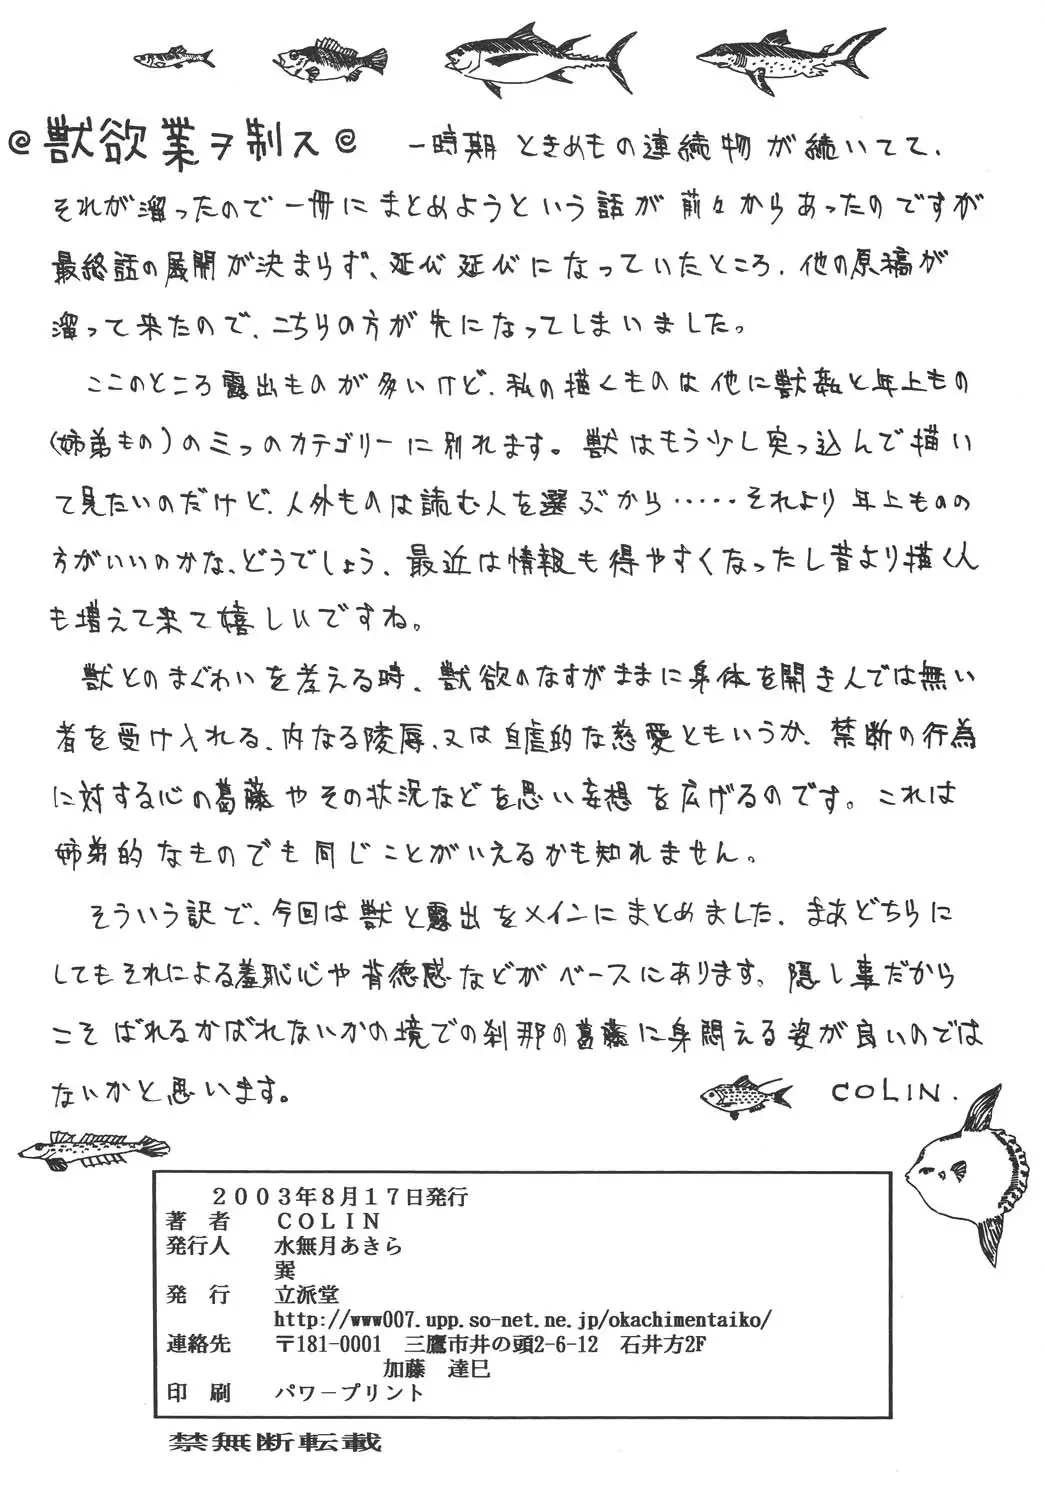 @獣欲業ヲ制ス@ 一時期ときめもの連続物が続いてて、
それが溜ったので一冊にまとめようという話が前々からあったのですが
最終話の展開が決まらず、延び延びになっていたところ、他の原稿が
溜って来たので、こちらの方が先になってしまいました。
ここのところ露出ものが多いけど、私の描くものは他に獣姦と年上もの
(姉弟もの)の三つのカテゴリーに別れます。獣はもう少し突っ込んで描い
て見たいのだけど、人外ものは読む人を選ぶから・・・・・それより年上ものの
方がいいのかな、どうでしょう、最近は情報も得やすくなったし昔より描く人
も増えて来て嬉しいですね。
獣とのまぐわいを考える時、獣欲のなすがままに身体を開き人では無い
者を受け入れる、内なる陵辱、又は自虐的な慈愛ともいうか、禁断の行為
に対する心の葛藤やその状況などを思い妄想を広げるのです。これは
姉弟的なものでも同じことがいえるかも知れません。
そういう訳で、今回は獣と露出をメインにまとめました、まあどちらに
してもそれによる羞恥心や背徳感などがベースにあります。隠し事だから
こそばれるかばれないかの境での刹那の葛藤に身悶える姿が良いのでは
ないかと思います。
COLIN.
２００３年８月１７日発行
著 者 ＣＯＬＩＮ
発行人 水無月あきら
巽
発 行 立派堂
http://www007.upp.so-net.ne.jp/okachimentaiko/
連絡先 〒181-0001 三鷹市井の頭2-6-12 石井方2F
加藤 達巳
印 刷 パワープリント
禁無断転載